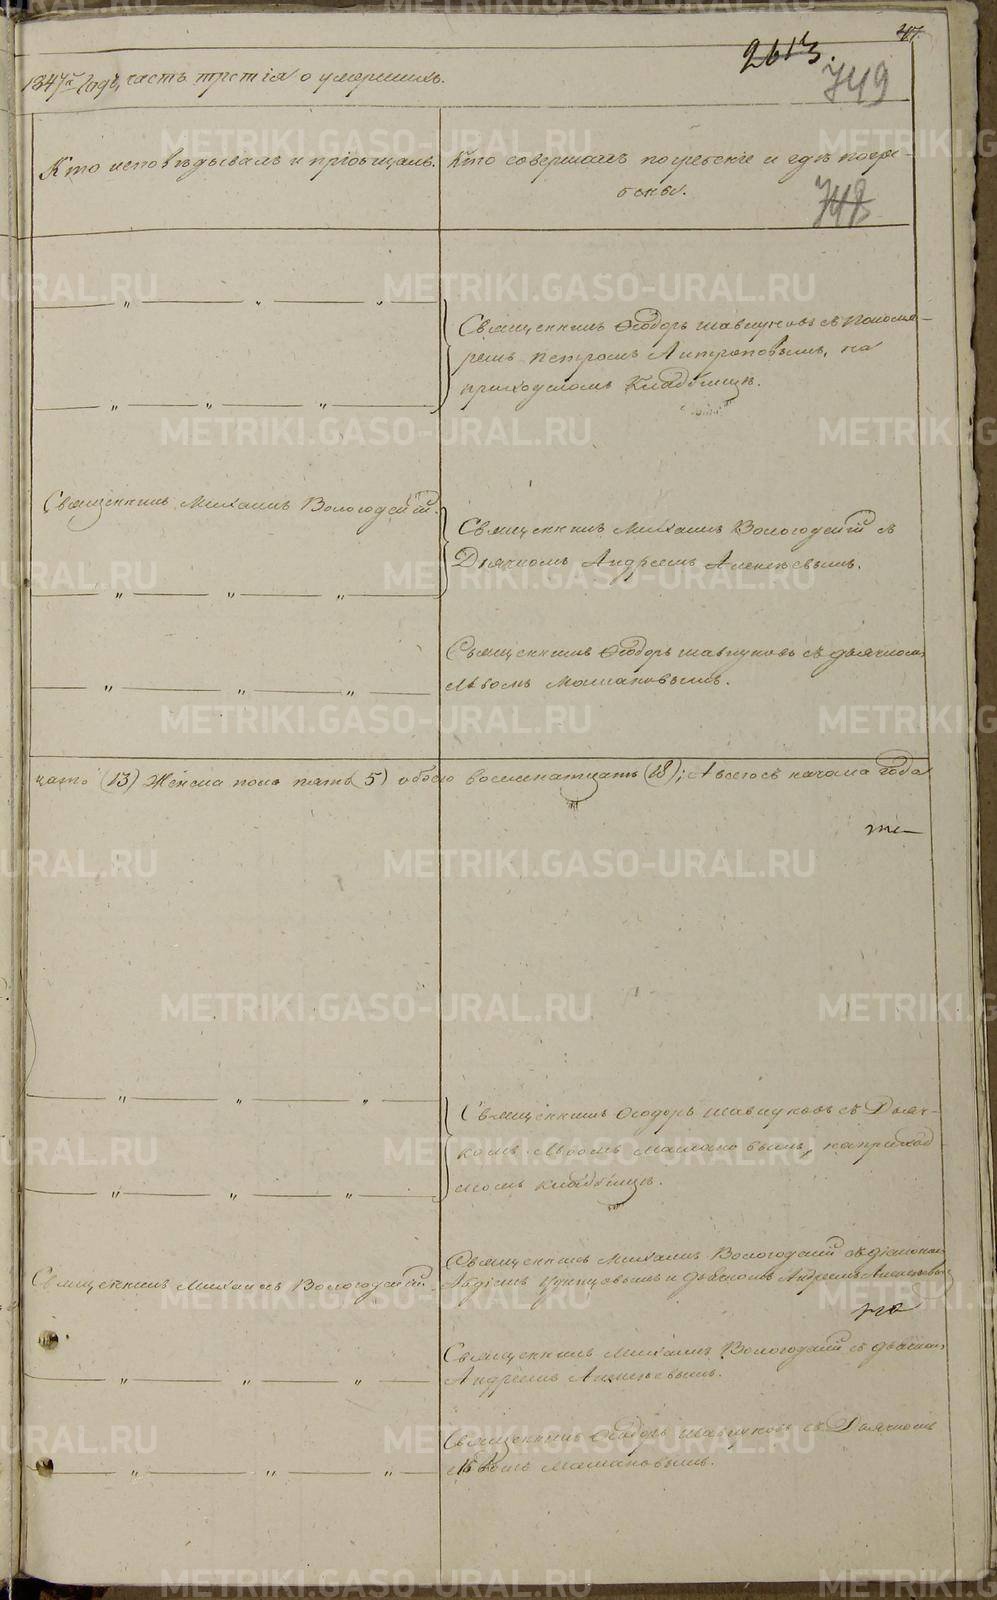 47.
2613.
749
1847го года, часть третiя о умершихъ.
Кто исповѣдывалъ и прiобщалъ.
Кто совершалъ погребенiе и гдѣ погре-
бены.
748
Священникъ Ѳеодоръ Шавнуновъ съ понома-
ремъ Петромъ Антроповымъ, на
приходскомъ Кладбищѣ.
Священникъ Михаилъ Вологодскiй.
Священникъ Михаилъ Вологодскiй съ
Дьячкомъ Андреемъ Алексѣевымъ.
Священникъ Ѳеодоръ Шавнуновъ съ дьячкомъ
Львомъ Мамановымъ.
цать (13) Женска полъ пять (5) обоего восемнатцать (18); А всего съ начала года
Священникъ Ѳеодоръ Шавнуновъ съ Дьяч-
комъ Львомъ Мамановымъ, на приход-
скомъ кладбищѣ.
Священникъ Михаилъ Вологодскiй съ дiакономъ
Священникъ Михаилъ Вологодскiй.
и дьячкомъ Андреемъ Алексѣевымъ
Священникъ Михаилъ Вологодскiй съ дьячкомъ
Андреемъ Алексѣевымъ.
Священникъ Ѳеодоръ Шавнуновъ съ Дьячкомъ
Львомъ Мамановымъ.
METRIKI.GASO-URAL.RU